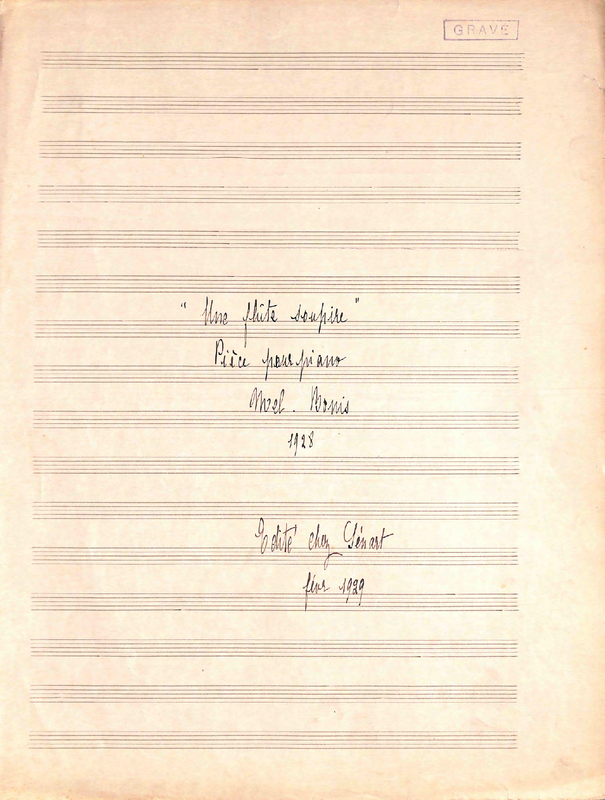 GRAVE
" Une flûte soupire "
Pièce pour piano
Mel. Bonis
1928
Edité chez Sénart
févr 1929